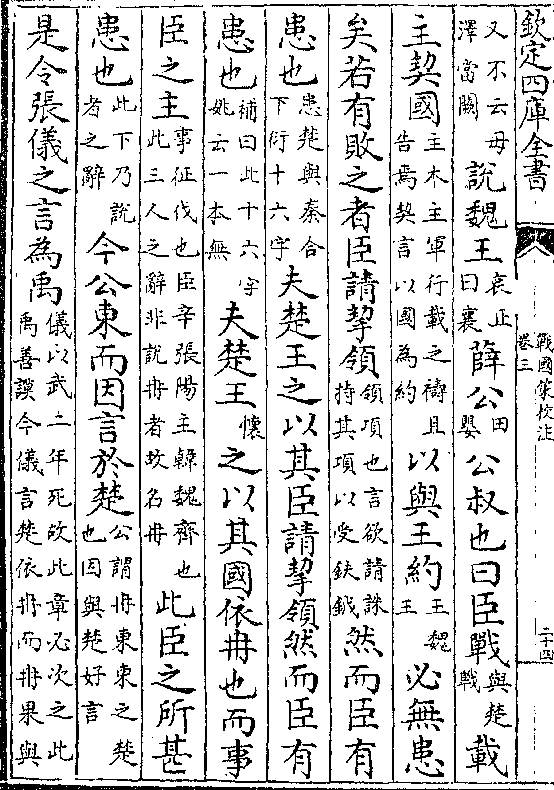 欽定四庫全書
戰國策校注
卷三
二十四
又不云毋澤當闕說魏王哀正曰襄薛公田嬰公叔也曰臣戰與楚戰載
主契國主木主軍行載之禱且告焉契言以國為約以與王約魏王必無患
矣若有敗之者臣請挈領領項也言欲請誅持其項以受鈇鉞然而臣有
患也患楚與秦合下衍十六字夫楚王之以其臣請挈領然而臣有
患也補曰此十六字姚云一本無夫楚王懷之以其國依冉也而事
臣之主事征伐也臣辛張陽主韓魏齊也此三人之辭非說冉者故名冉此臣之所甚
患也此下乃說者之辭今公東而因言於楚公謂冉東東之楚也因與楚好言
是令張儀之言為禹儀以武二年死故此章必次之此禹善謨今儀言楚依冉而冉果與